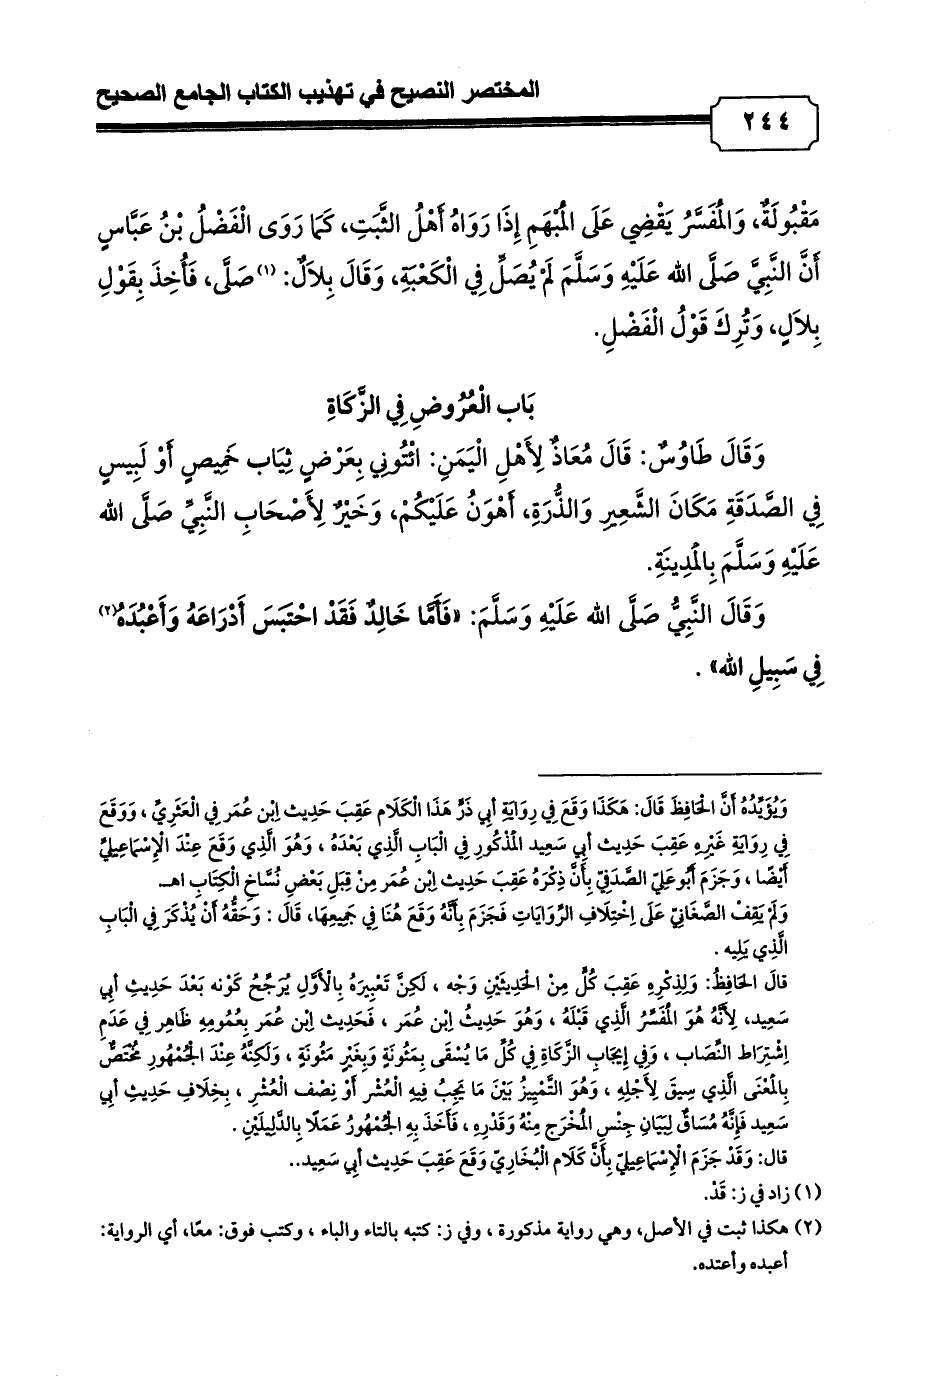 المختصر النصيح في تهذيب الكتاب الجامع الصحيح
٢٤٤
مَقْبُولَةٌ، وَالْمُفَسَّرُ يَقْضِي عَلَى الْمُبْهَمِ إِذَا رَوَاهُ أَهْلُ الثَّبَتِ، كَمَا رَوَى الْفَضْلُ بْنُ عَبَّاسٍ
أَنَّ النَّبِيَّ صَلَّى الله عَلَيْهِ وَسَلَّمَ لَمْ يُصَلِّ فِي الْكَعْبَةِ، وَقَالَ بِلَالٌ: (١) صَلَّى، فَأُخِذَ بِقَوْلِ
بِلَالٍ، وَتُرِكَ قَوْلُ الْفَضْلِ.
بَاب الْعُرُوضِ فِي الزَّكَاةِ
وَقَالَ طَاوُسٌ: قَالَ مُعَاذٌ لِأَهْلِ الْيَمَنِ: ائْتُونِي بِعَرْضٍ ثِيَاب خَمِيصٍ أَوْ لَبِيسٍ
فِي الصَّدَقَةِ مَكَانَ الشَّعِيرِ وَالذُّرَةِ، أَهْوَنُ عَلَيْكُمْ، وَخَيْرٌ لِأَصْحَابِ النَّبِيِّ صَلَّى الله
عَلَيْهِ وَسَلَّمَ بِالْمَدِينَةِ.
وَقَالَ النَّبِيُّ صَلَّى الله عَلَيْهِ وَسَلَّمَ: «فَأَمَّا خَالِدٌ فَقَدْ احْتَبَسَ أَدْرَاعَهُ وَأَعْبُدَهُ(٢)
فِي سَبِيلِ الله» .
وَيُؤَيِّدُهُ أَنَّ الْحَافِظَ قَالَ: هَكَذَا وَقَعَ فِي رِوَايَةِ أَبِي ذَرٍّ هَذَا الْكَلَام عَقِبَ حَدِيث اِبْن عُمَر فِي الْعَثَرِيِّ ، وَوَقَعَ
فِي رِوَايَةِ غَيْرِهِ عَقِبَ حَدِيث أَبِي سَعِيد الْمَذْكُورِ فِي الْبَابِ الَّذِي بَعْدَهُ ، وَهُوَ الَّذِي وَقَعَ عِنْدَ الْإِسْمَاعِيلِيِّ
أَيْضًا ، وَجَزَمَ أَبُو عَلِيّ الصَّدَفِيّ بِأَنَّ ذِكْرَهُ عَقِبَ حَدِيث اِبْن عُمَر مِنْ قِبَلِ بَعْض نُسَّاخِ الْكِتَابِ اهـ.
وَلَمْ يَقِفْ الصَّغَانِيّ عَلَى اِخْتِلَافِ الرِّوَايَاتِ فَجَزَمَ بِأَنَّهُ وَقَعَ هُنَا فِي جَمِيعِهَا، قَالَ : وَحَقُّهُ أَنْ يُذْكَرَ فِي الْبَابِ
الَّذِي يَلِيه .
قَالَ الْحَافِظُ: وَلِذِكْرِهِ عَقِبَ كُلٍّ مِنْ الْحَدِيثَيْنِ وَجْه ، لَكِنَّ تَعْبِيرَهُ بِالْأَوَّلِ يُرَجِّحُ كَوْنه بَعْدَ حَدِيثِ أَبِي
سَعِيد، لِأَنَّهُ هُوَ الْمُفَسِّرُ الَّذِي قَبْلَهُ ، وَهُوَ حَدِيثُ اِبْن عُمَر ، فَحَدِيث اِبْن عُمَر بِعُمُومِهِ ظَاهِر فِي عَدَمِ
اِشْتِرَاط النِّصَاب ، وَفِي إِيجَابِ الزَّكَاةِ فِي كُلِّ مَا يُسْقَى بِمَئُونَةٍ وَبِغَيْرِ مَئُونَةٍ ، وَلَكِنَّهُ عِنْدَ الْجُمْهُورِ مُخْتَصٌّ
بِالْمَعْنَى الَّذِي سِيقَ لِأَجْلِهِ ، وَهُوَ التَّمْيِيزُ بَيْنَ مَا يَجِبُ فِيهِ الْعُشْر أَوْ نِصْف الْعُشْر ، بِخِلَافِ حَدِيثِ أَبِي
سَعِيد فَإِنَّهُ مُسَاقٌ لِبَيَانِ جِنْسِ الْمُخْرَج مِنْهُ وَقَدْرِهِ ، فَأَخَذَ بِهِ الْجُمْهُورُ عَمَلًا بِالدَّلِيلَيْنِ .
قال: وَقَدْ جَزَمَ الْإِسْمَاعِيلِيّ بِأَنَّ كَلَام الْبُخَارِيّ وَقَعَ عَقِبَ حَدِيث أَبِي سَعِيد..
(١) زاد في ز: قَدْ.
(٢) هكذا ثبت في الأصل، وهي رواية مذكورة ، وفي ز: كتبه بالتاء والباء ، وكتب فوق: معًا، أي الرواية:
أعبده وأعتده.